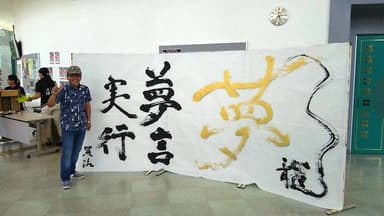 龍
夢
夢言
実行